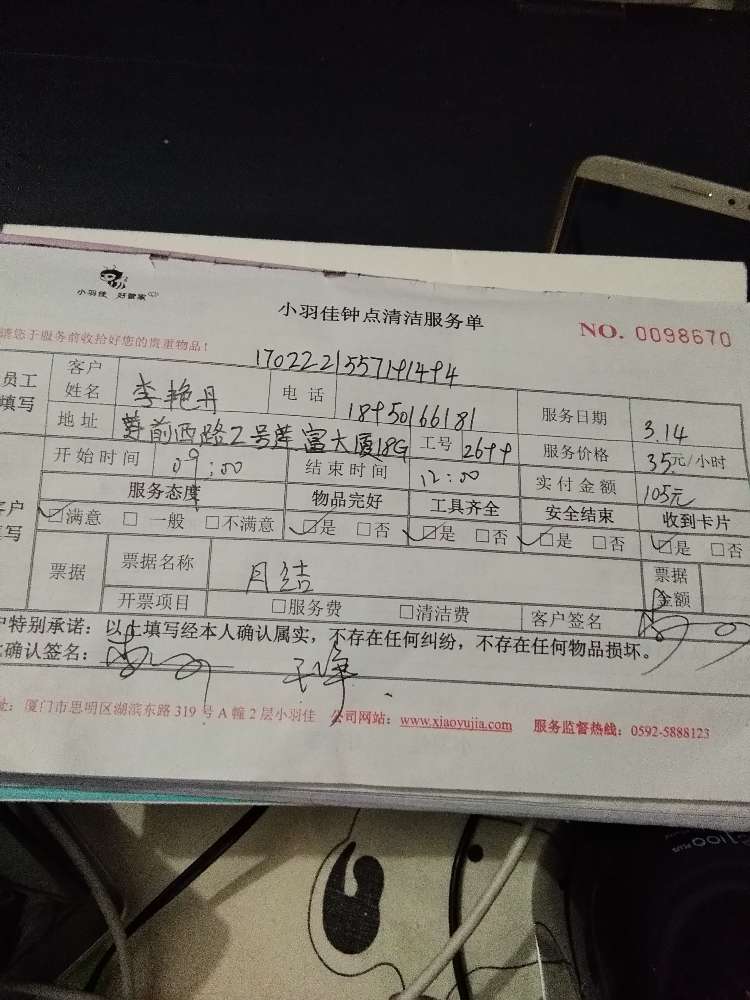 小羽佳 好管家
小羽佳钟点清洁服务单
NO. 0098670
请您于服务前收拾好您的贵重物品！
1702221557191494
员工填写 客户姓名 李艳丹 电话 18950166181 服务日期 3.14
地址 莲前西路2号莲富大厦18G 工号 2699 服务价格 35元/小时
开始时间 09:00 结束时间 12:00 实付金额 105元
服务态度 物品完好 工具齐全 安全结束 收到卡片
满意 一般 不满意 是 否 是 否 是 否 是 否
票据 票据名称 月结 票据金额
开票项目 服务费 清洁费 客户签名
户特别承诺：以上填写经本人确认属实，不存在任何纠纷，不存在任何物品损坏。
确认签名：
址：厦门市思明区湖滨东路 319 号 A 幢 2 层小羽佳 公司网站：www.xiaoyujia.com 服务监督热线：0592-5888123